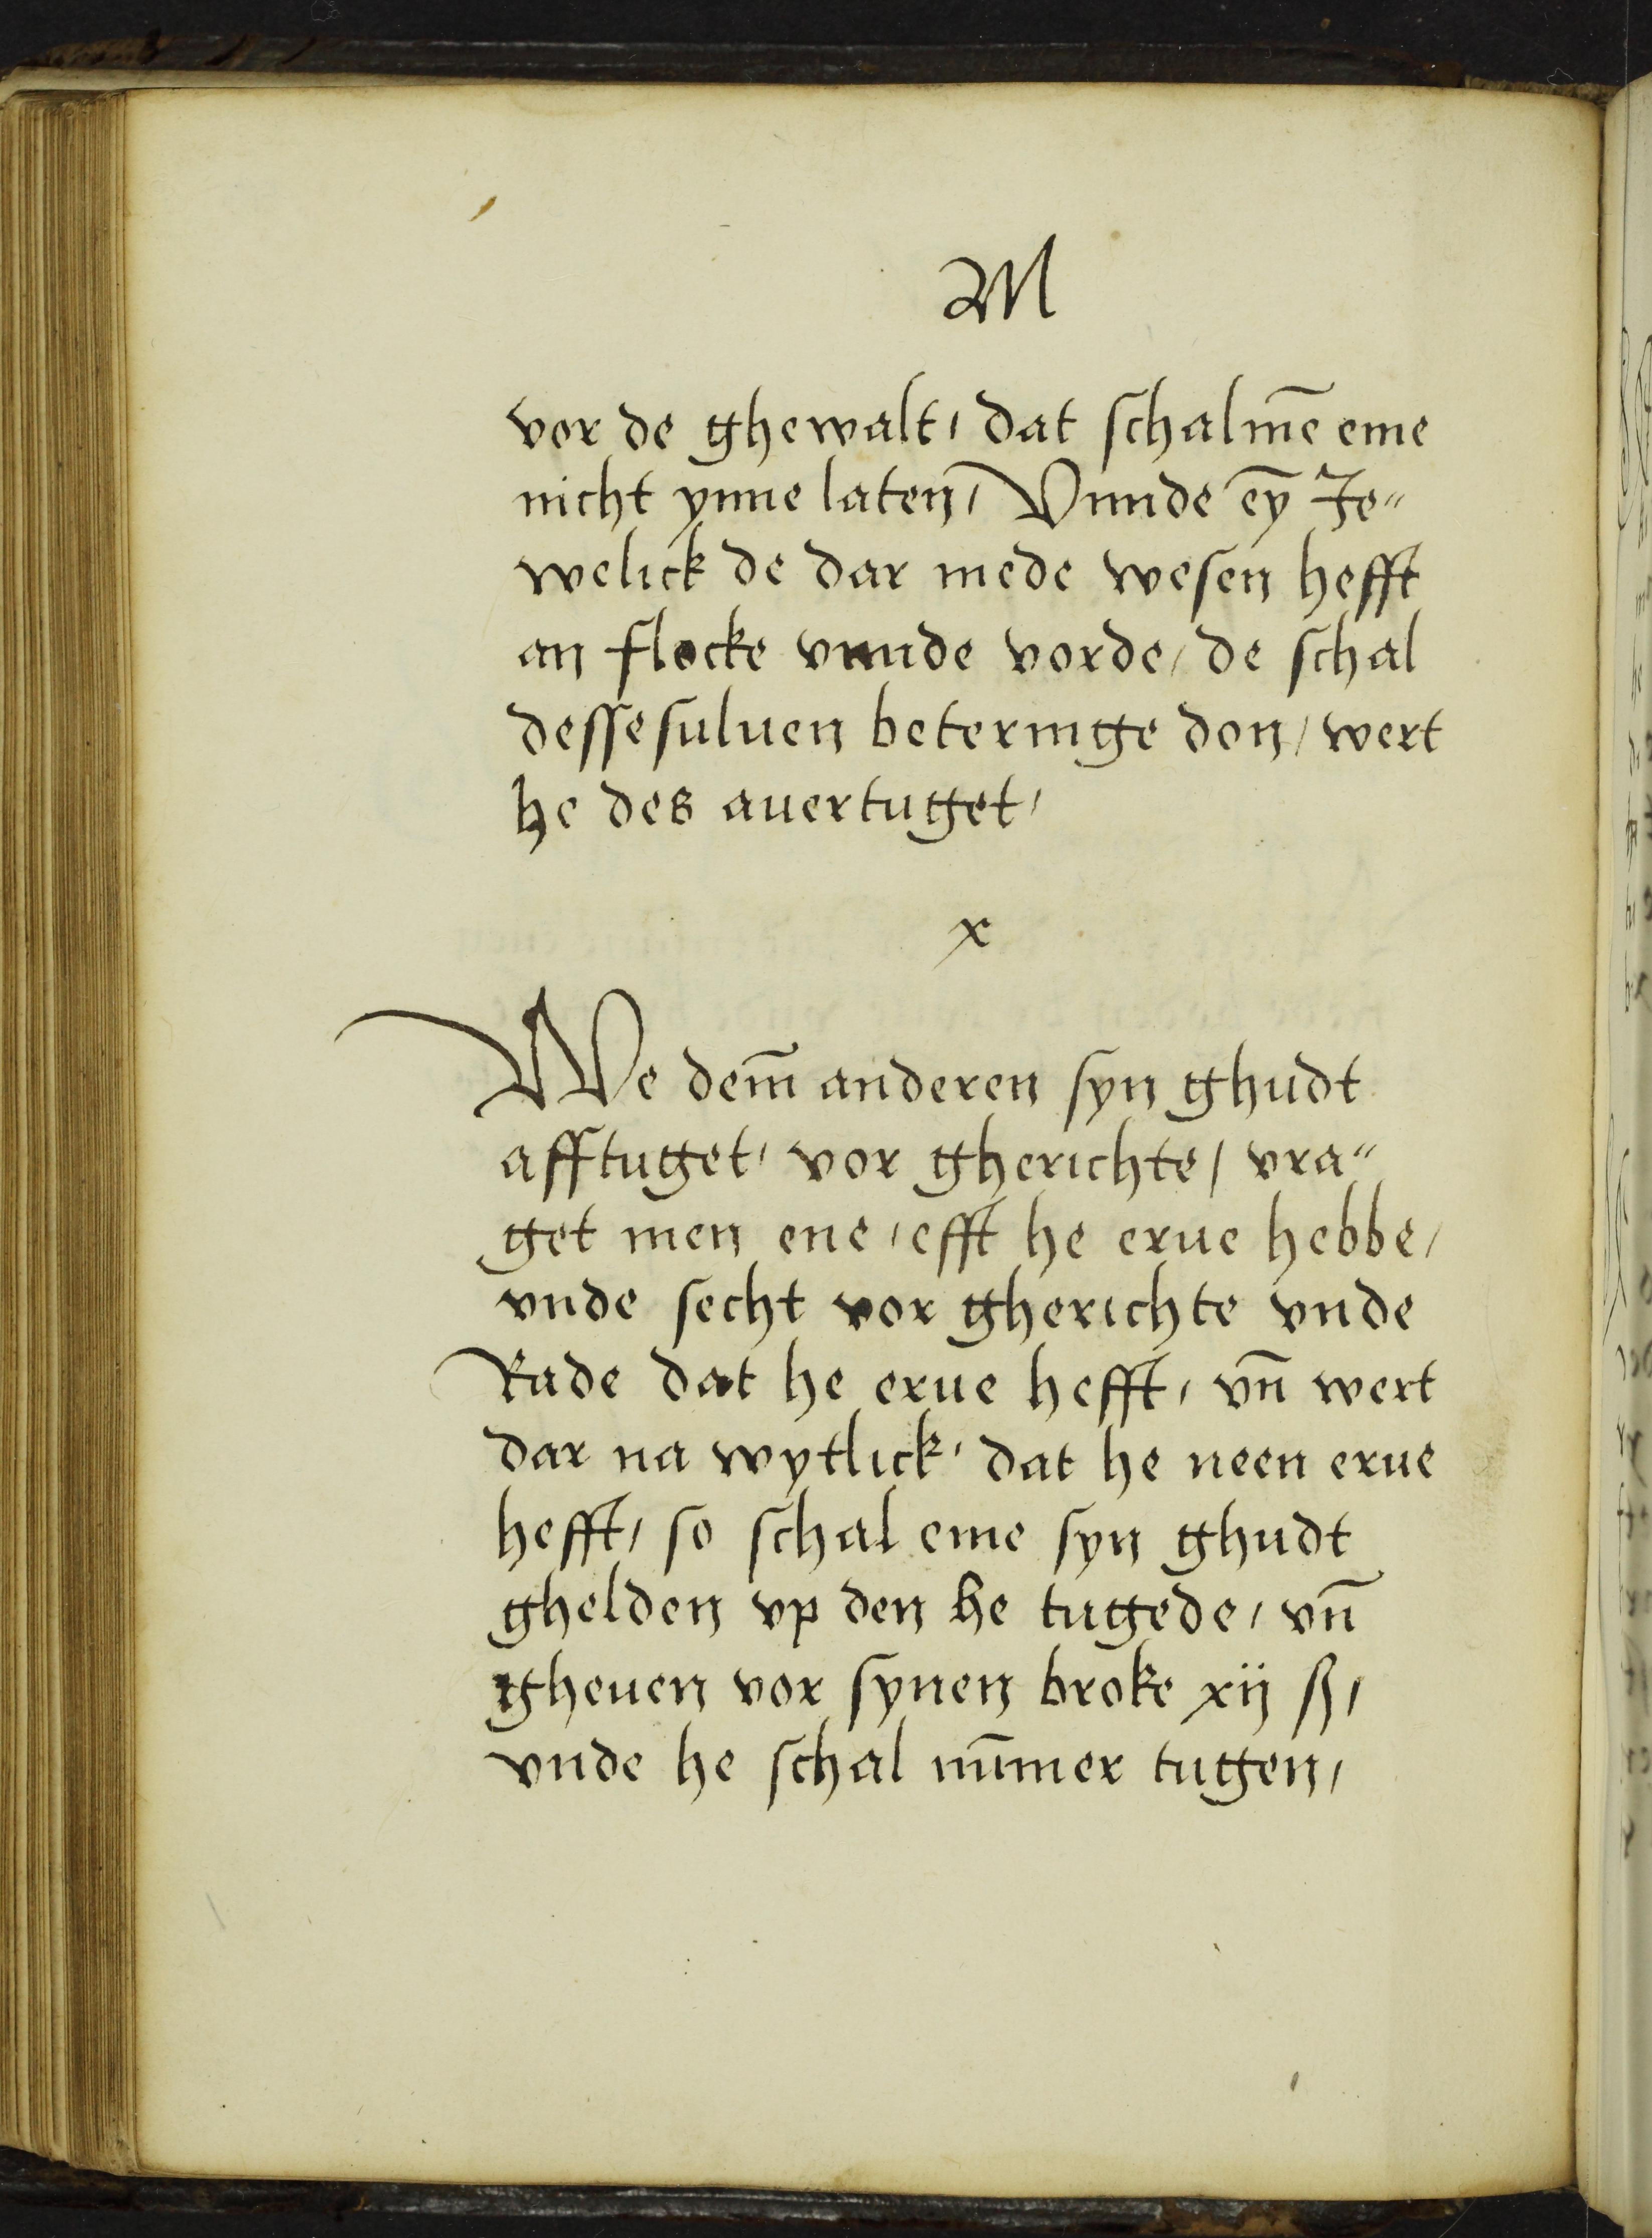 M
vor de ghewalt, dat schalmē eme
nicht ynne laten, Vnnde ēy Je"
welick de dar mede wesen hefft
an flocke vnnde vorde, de schal
dessesuluen beteringe don, wert
he des auertuget,
x
We dem̄ anderen syn ghudt
afftuget, vor gherichte, vra"
get men ene, efft he erue hebbe,
vnde secht vor gherichte vnde
Rade dat he erue hefft, vn̄ wert
dar na wytlick, dat he neen erue
hefft, so schal eme syn ghudt
ghelden vp den he tugede, vn̄
gheuen vor synen broke xij ß,
vnde he schal nūmer tugen,